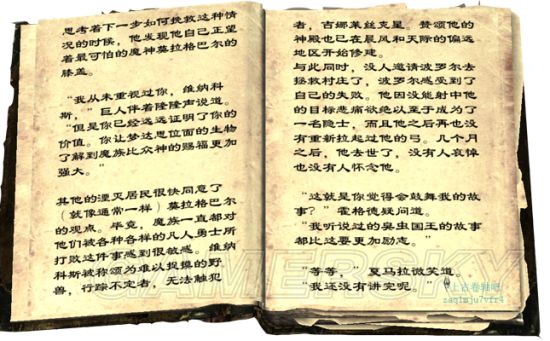 思考着下一步如何挽救这种情
况的时候，他发现他自己正望
着最可怕的魔神莫拉格巴尔的
膝盖。
“我从未重视过你，维纳科
斯，”巨人伴着隆隆声说道。
“但是你已经远远证明了你的
价值。你让梦达思位面的生物
了解到魔族比众神的赐福更加
强大。”
其他的湮灭居民很快同意了
（就像通常一样）莫拉格巴尔
的观点。毕竟，魔族一直都对
他们被各种各样的凡人勇士所
打败这件事感到很敏感。维纳
科斯被称颂为难以捉摸的野
兽，行踪不定者，无法触犯
者，吉娜莱丝克星。赞颂他的
神殿也已在晨风和天际的偏远
地区开始修建。
与此同时，没人邀请波罗尔去
拯救村庄了，波罗尔感受到了
自己的失败。他因没能射中他
的目标悲痛欲绝以至于成为了
一名隐士，而且他之后再也没
有重新拉起过他的弓。几个月
之后，他去世了，没有人哀悼
也没有人怀念他。
“这就是你觉得会鼓舞我的故
事？”霍格德疑问道。
“我听说过的臭虫国王的故事
都比这要更加励志。”
“等等，”夏马拉微笑道。
“我还没有讲完呢。”
@上古卷轴吧
zaq1mju7vfr4
GAMERSKY